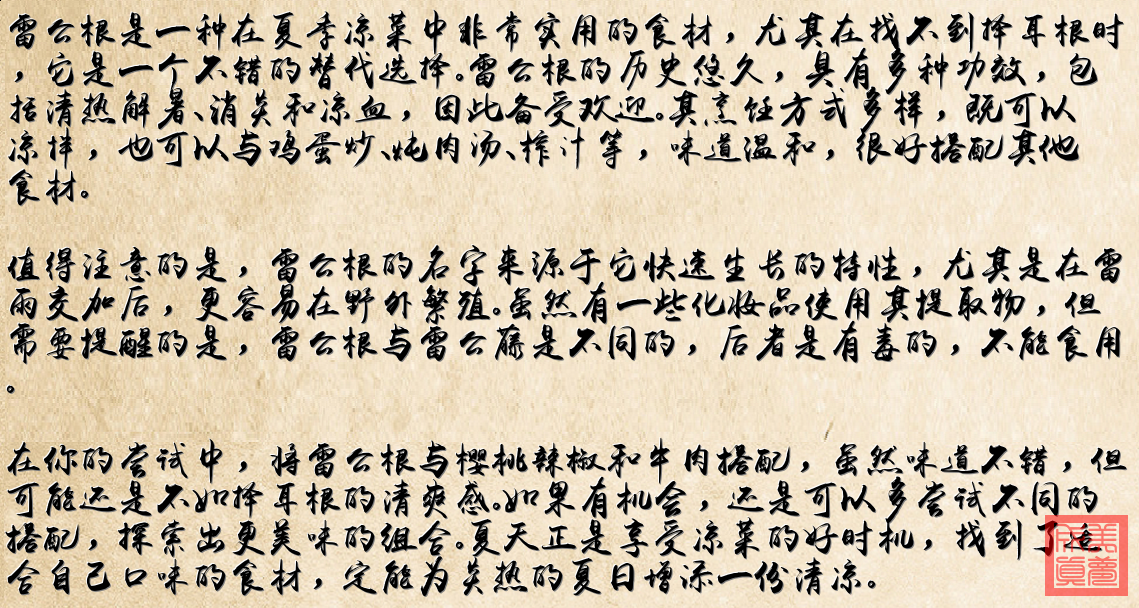 雷公根是一种在夏季凉菜中非常实用的食材，尤其在找不到择耳根时
，它是一个不错的替代选择。雷公根的历史悠久，具有多种功效，包
括清热解暑、消炎和凉血，因此备受欢迎。其烹饪方式多样，既可以
凉拌，也可以与鸡蛋炒、炖肉汤、榨汁等，味道温和，很好搭配其他
食材。
值得注意的是，雷公根的名字来源于它快速生长的特性，尤其是在雷
雨交加后，更容易在野外繁殖。虽然有一些化妆品使用其提取物，但
需要提醒的是，雷公根与雷公藤是不同的，后者是有毒的，不能食用
。
在你的尝试中，将雷公根与樱桃辣椒和牛肉搭配，虽然味道不错，但
可能还是不如择耳根的清爽感。如果有机会，还是可以多尝试不同的
搭配，探索出更美味的组合。夏天正是享受凉菜的好时机，找到了适
合自己口味的食材，定能为炎热的夏日增添一份清凉。